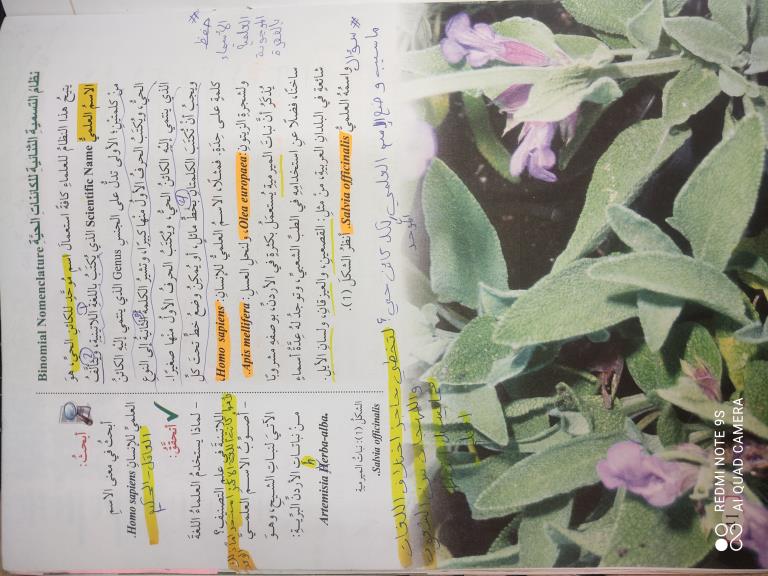 نظام التسمية الثنائية للكائنات الحية Binomial Nomenclature
يتيح هذا النظام للعلماء كافة استعمال اسم موحد للكائن الحي، هو
الاسم العلمي Scientific Name الذي يكتب باللغة اللاتينية، ويتألف
من كلمتين؛ الأولى تدل على الجنس Genus الذي ينتمي إليه الكائن
الحي، ويكتب الحرف الأول منها كبيرا، وتشير الكلمة الثانية إلى النوع
الذي ينتمي إليه الكائن الحي، ويكتب الحرف الأول منها صغيرا.
ويجب أن تكتب الكلمتان بخط مائل، أو يمكن وضع خط تحت كل
كلمة على حدة. فمثلا، الاسم العلمي للإنسان: Homo sapiens،
ولشجرة الزيتون: Olea europaea، ولنحل العسل: Apis mellifera.
يذكر أن نبات الميرمية يستعمل بكثرة في الأردن، بوصفه مشروبا
ساخنا، فضلا عن استخدامه في الطب الشعبي، وتوجد له عدة أسماء
شائعة في البلدان العربية، من مثل: القصعين، والعيزقان، ولسان الأيل.
واسمه العلمي Salvia officinalis. أنظر الشكل (1).
* سؤال
ما سبب وضع اسم العلمي لكل كائن حي؟
الموحد
لتخطي حاجز اختلاف اللغات
حفظ
الأسماء
العلمية
الموجودة
بالفقرة
أبحث:
أبحث في معنى الاسم
العلمي للإنسان Homo sapiens.
✓ أتحقق:
- لماذا يستخدم العلماء اللغة
اللاتينية في علم التصنيف؟
- أصوب الاسم العلمي
الآتي لنبات الشيح، وهو
من نباتات الأردن البرية:
Artemisia Herba-alba.
h
الشكل (1): نبات الميرمية
Salvia officinalis.
REDMI NOTE 9S
AI QUAD CAMERA